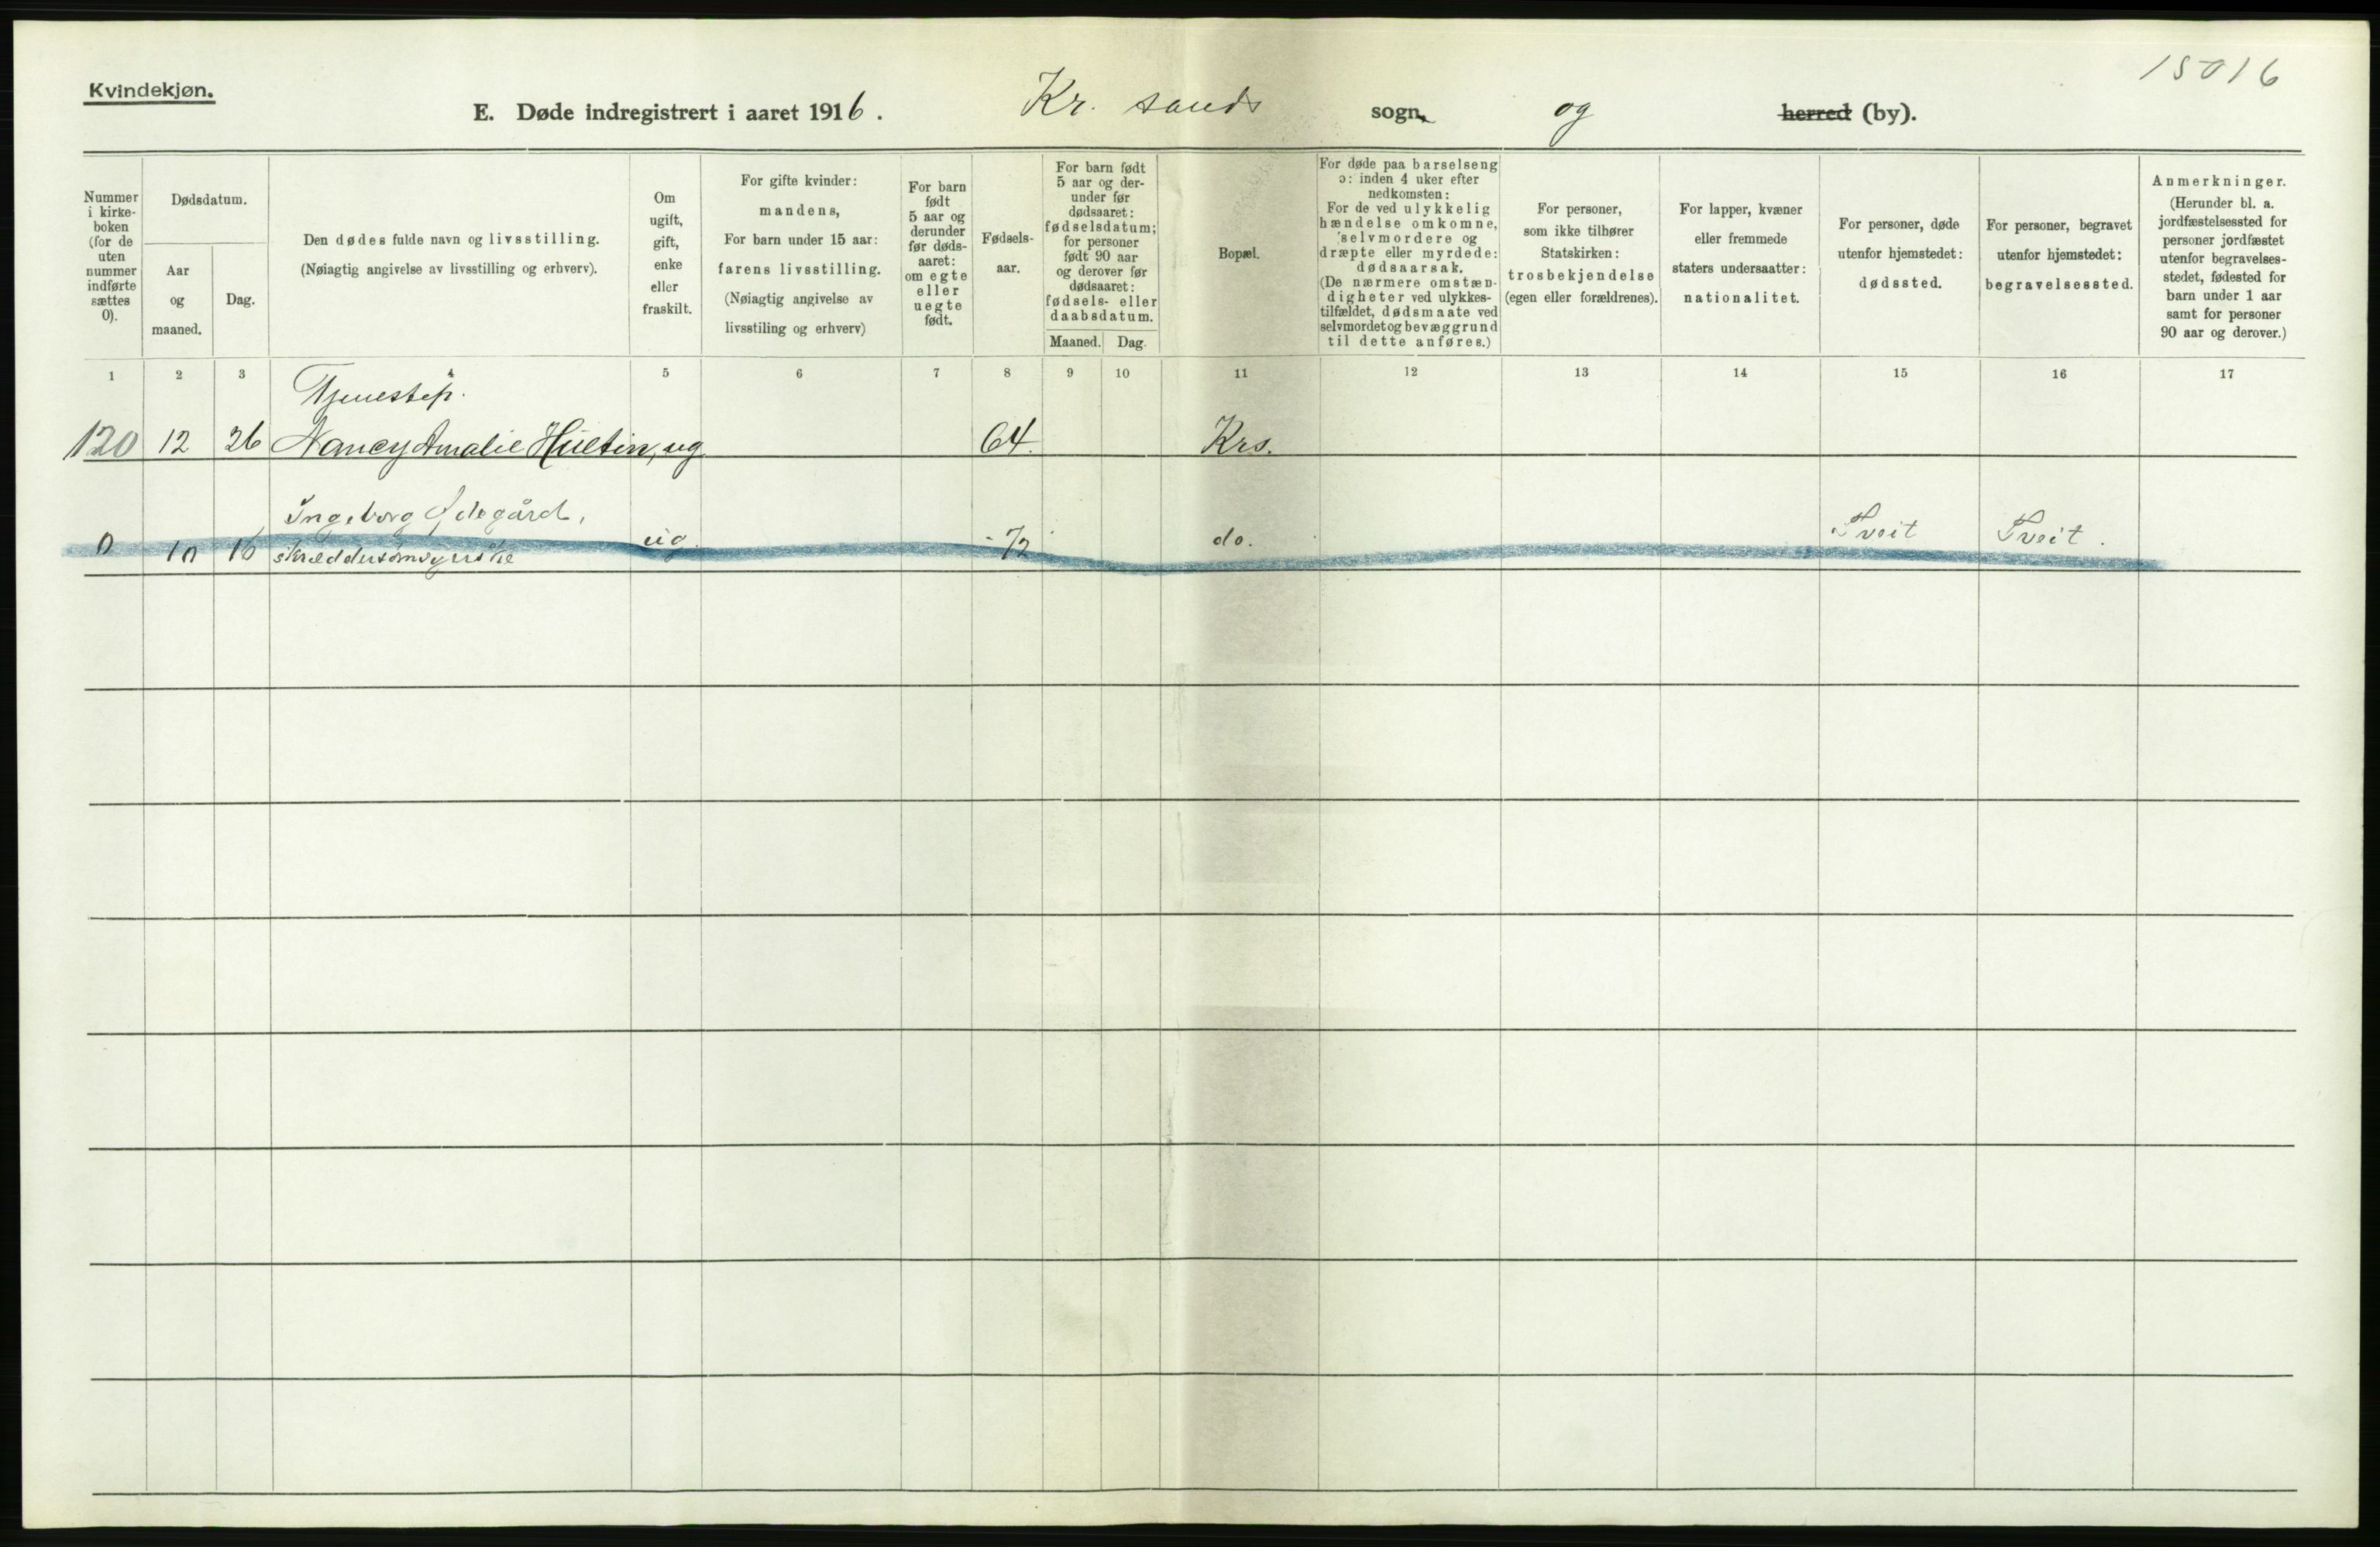 15016
Kvindekjøn.
E. Døde indregistrert i aaret 1916. Kr. sands sogn og herred (by).
Nummer i kirkeboken (for de uten nummer indførte sættes 0).
Dødsdatum.
Aar og maaned.
Dag.
Den dødes fulde navn og livsstilling.
(Nøiagtig angivelse av livsstilling og erhverv).
Om ugift, gift, enke eller fraskilt.
For gifte kvinder:
mandens,
For barn under 15 aar:
farens livsstilling.
(Nøiagtig angivelse av
livsstiling og erhverv)
For barn født 5 aar og derunder før dødsaaret: om egte eller uegte født.
Fødselsaar.
For barn født 5 aar og derunder før dødsaaret: fødselsdatum; for personer født 90 aar og derover før dødsaaret: fødsels- eller daabsdatum.
Maaned. Dag.
Bopæl.
For døde paa barselseng
ɔ: inden 4 uker efter
nedkomsten:
For de ved ulykkelig
hændelse omkomne,
selvmordere og
dræpte eller myrdede:
dødsaarsak.
(De nærmere omstæn-
digheter ved ulykkes-
tilfældet, dødsmaate ved
selvmordet og bevæggrund
til dette anføres.)
For personer,
som ikke tilhører
Statskirken:
trosbekjendelse
(egen eller forældrenes).
For lapper, kvæner
eller fremmede
staters undersaatter:
nationalitet.
For personer, døde
utenfor hjemstedet:
dødssted.
For personer, begravet
utenfor hjemstedet:
begravelsessted.
Anmerkninger.
(Herunder bl. a.
jordfæstelsessted for
personer jordfæstet
utenfor begravelses-
stedet, fødested for
barn under 1 aar
samt for personer
90 aar og derover.)
1 2 3 4 5 6 7 8 9 10 11 12 13 14 15 16 17
Tjenestep.
120 12 26 Nancy Amalie Hultin, ug 64. Krs.
Ingeborg Ødegård,
0 10 10 skræddersømsyerske ug. 72 do. Tveit Tveit.